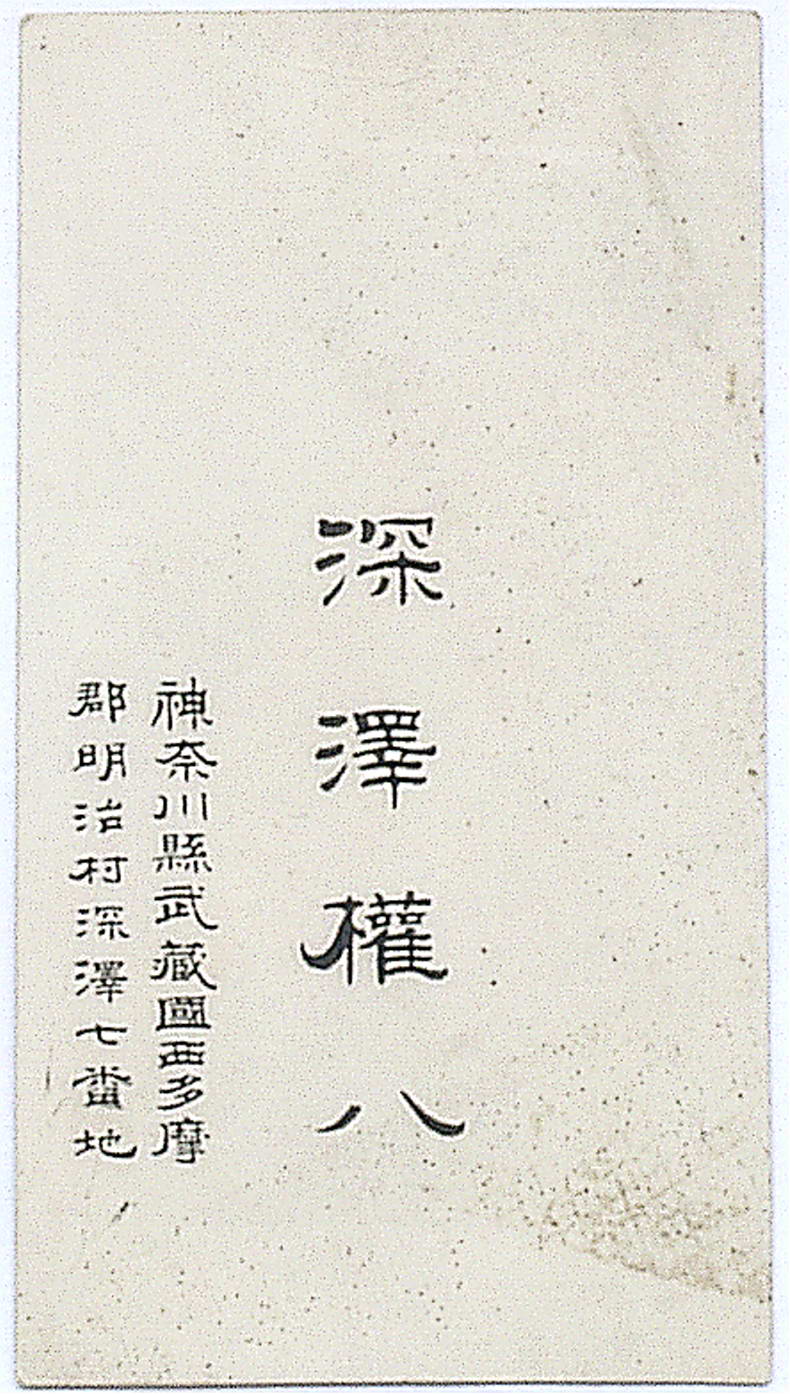 深澤權八
神奈川縣武藏國西多摩
郡明治村深澤七番地